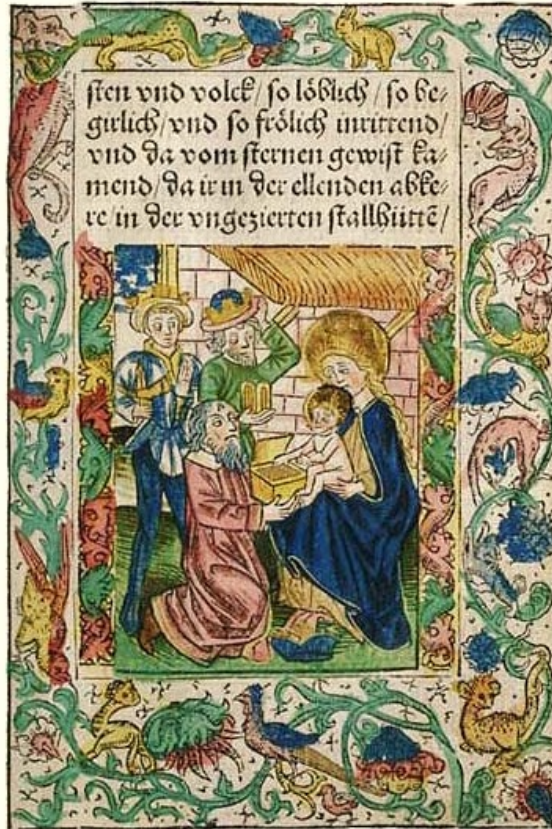 sten vnd volck / so löblich / so be-
girlich / vnd so frölich inrittend /
vnd da vom sternen gewist ka-
mend / da ir in der ellenden abke-
re / in der vngezierten stallhüttē /